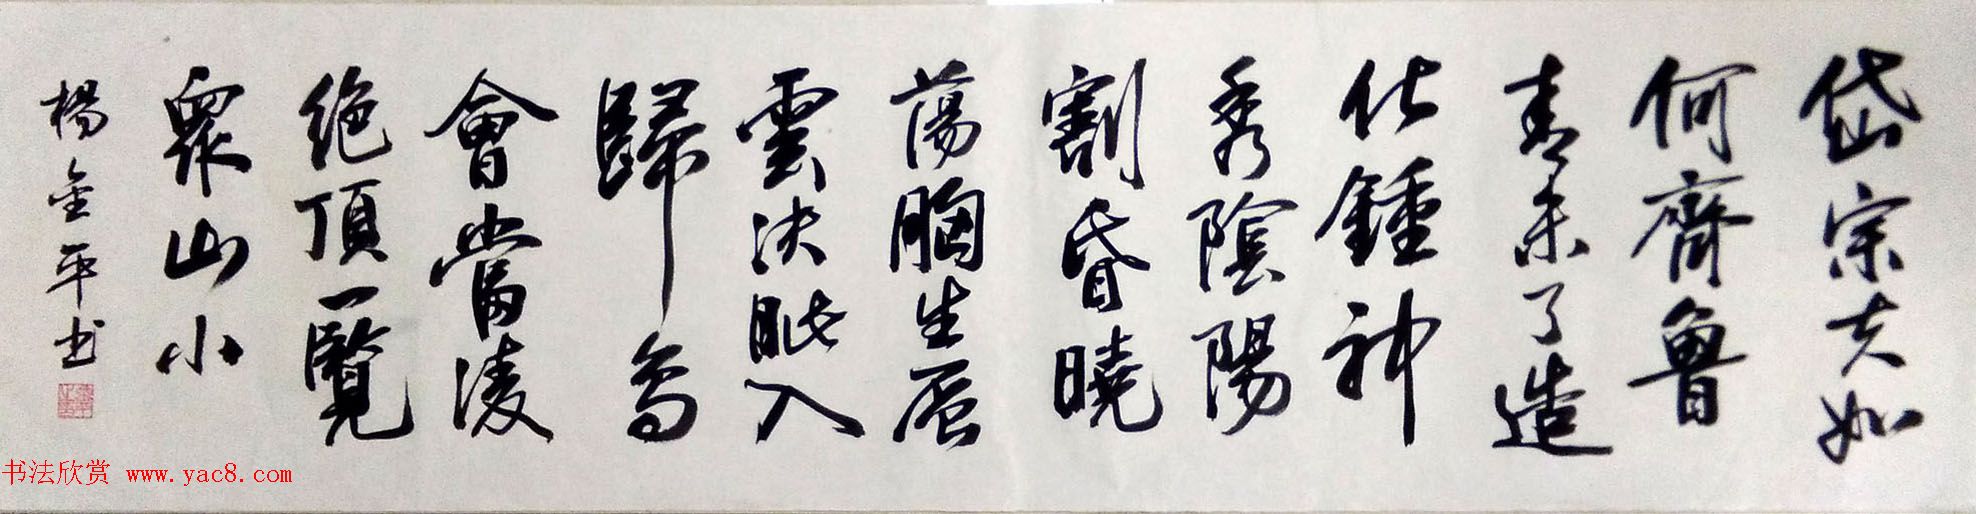 岱宗夫如
何齊魯
青未了造
化鍾神
秀陰陽
割昏曉
蕩胸生层
雲決眦入
歸鳥
會當淩
絶頂一覽
眾山小
楊金平书
书法欣赏 www.yac8.com